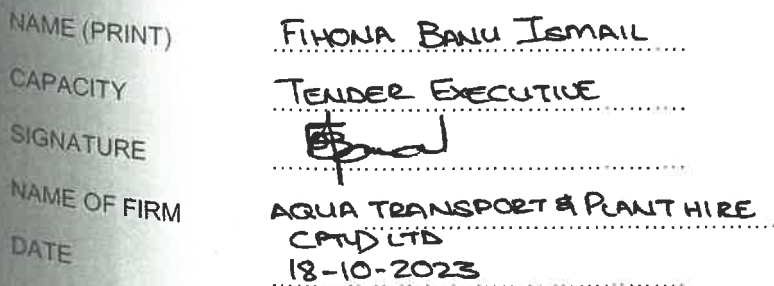 NAME (PRINT) FIHONA BANU ISMAIL
CAPACITY TENDER EXECUTIVE
SIGNATURE
NAME OF FIRM AQUA TRANSPORT & PLANT HIRE
(PTY) LTD
DATE 18-10-2023